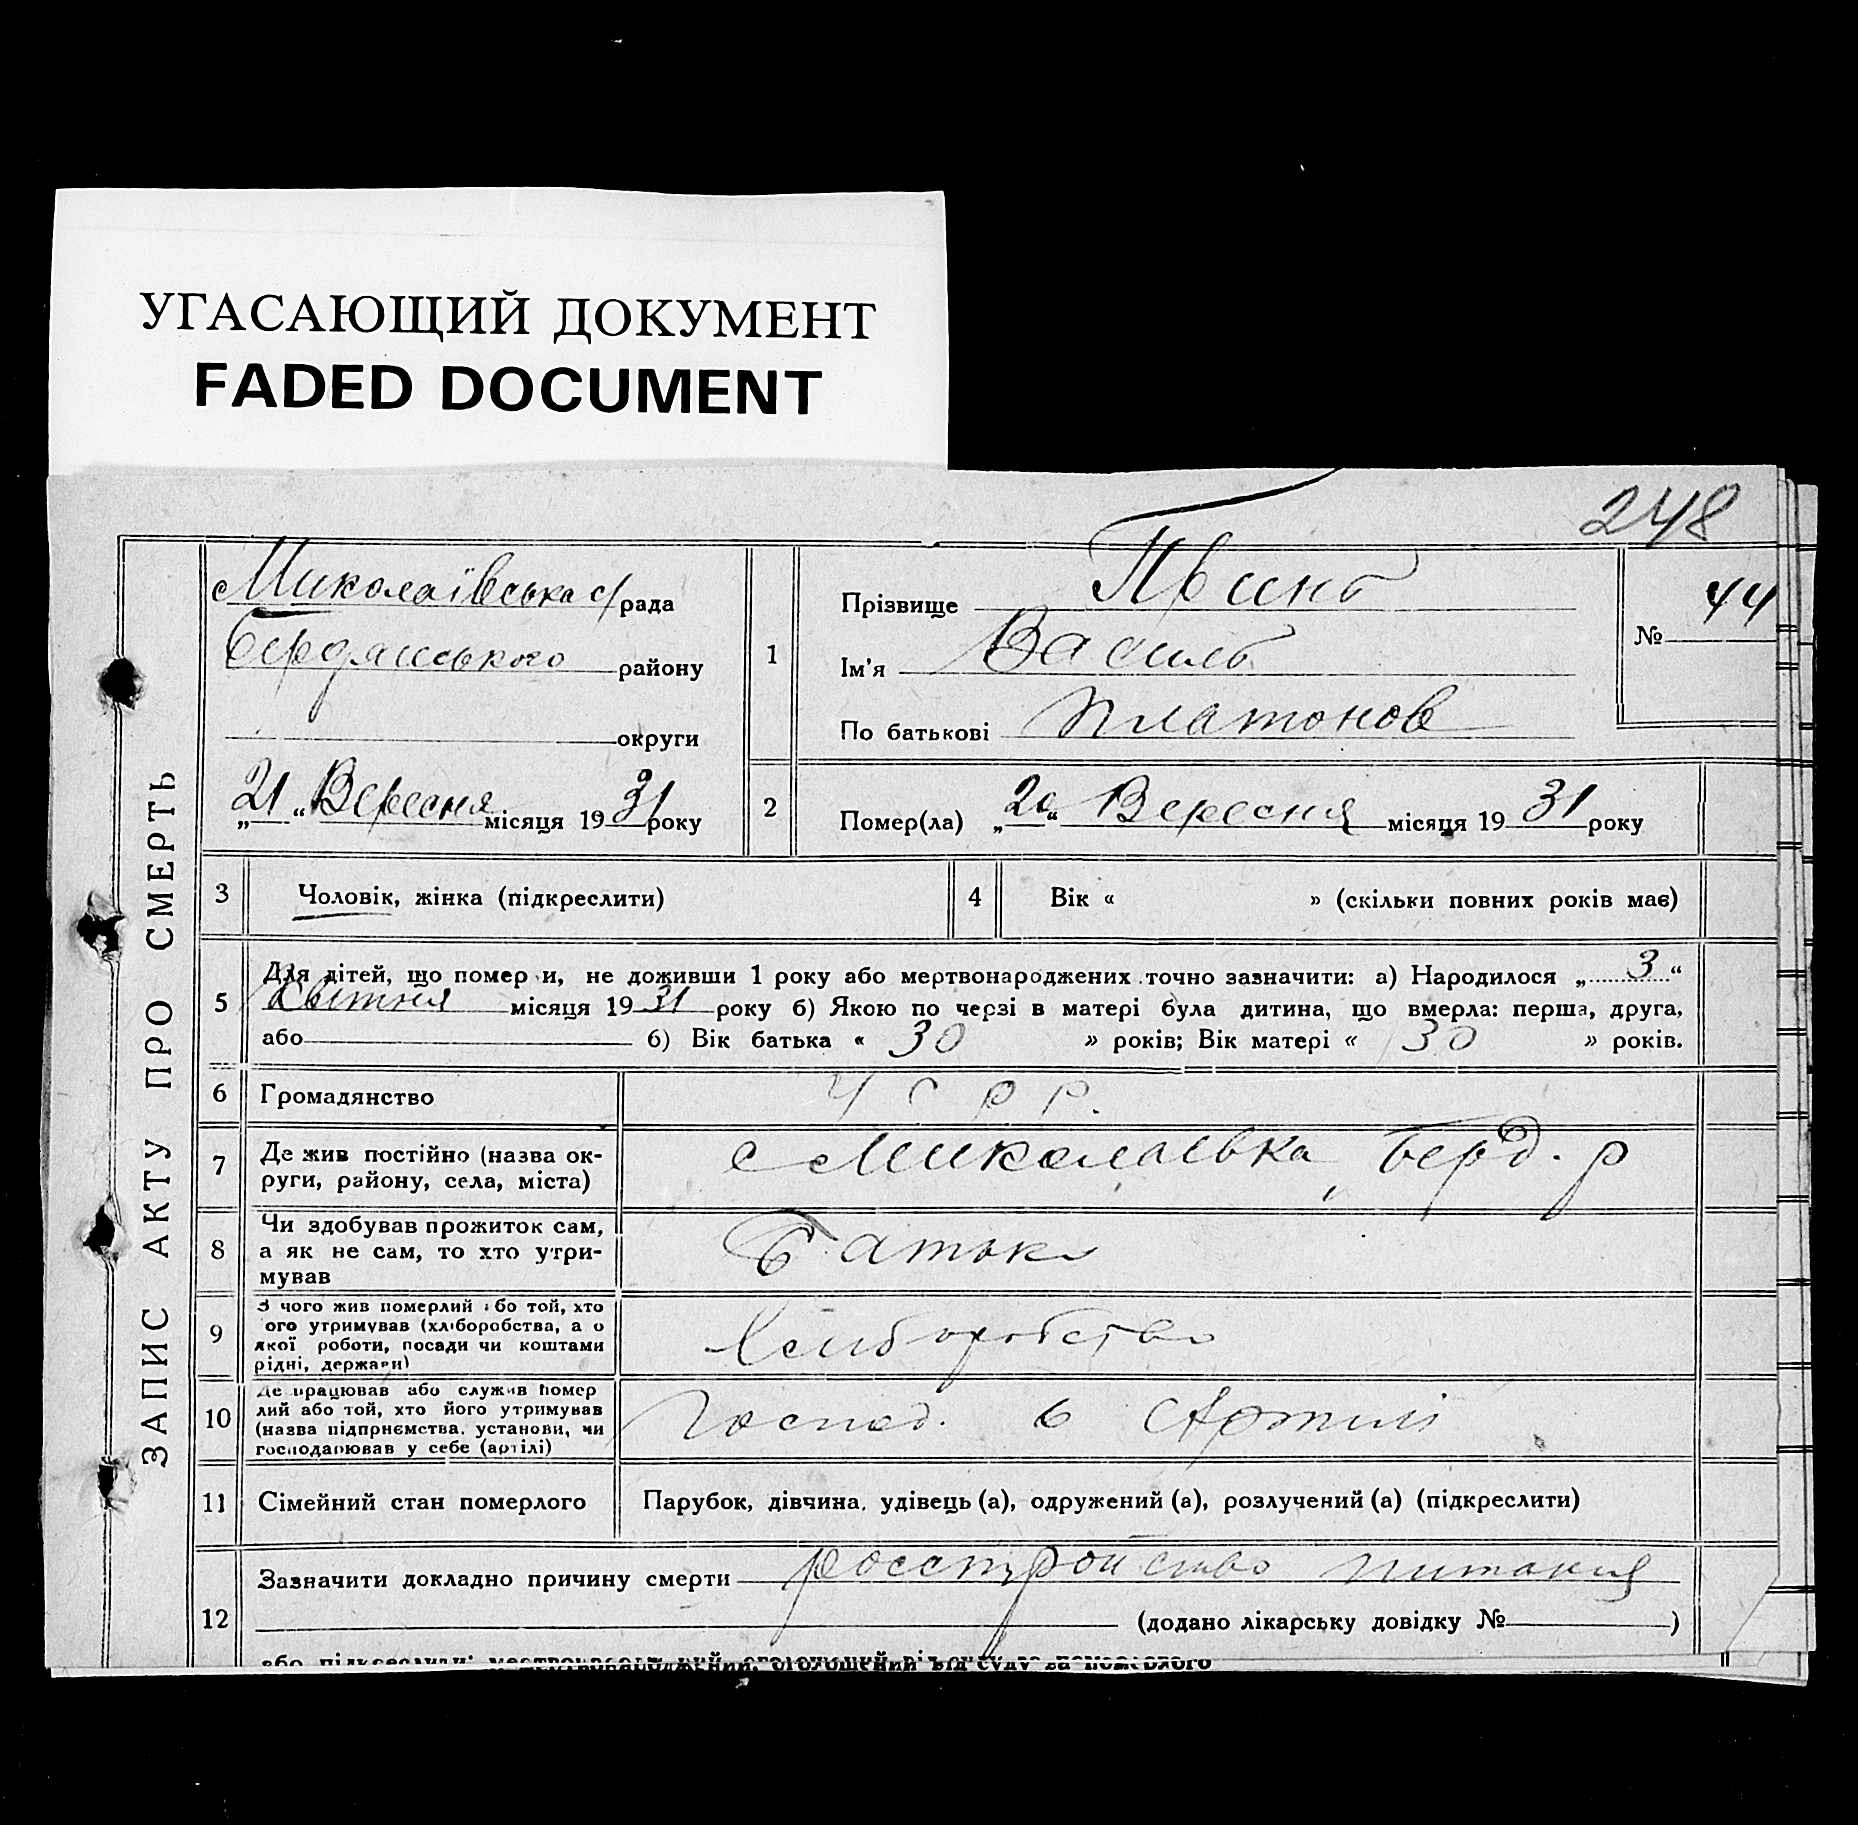 УГАСАЮЩИЙ ДОКУМЕНТ
FADED DOCUMENT
248
ЗАПИС АКТУ ПРО СМЕРТЬ
Миколаївська с/рада
Бердянського району
округи
„21“ Вересня місяця 1931 року
1
Прізвище
Ім'я Василь
По батькові Платонов
№ 44
2
Помер(ла) „20“ Вересня місяця 1931 року
3 Чоловік, жінка (підкреслити)
4 Вік « » (скільки повних років має)
5 Для дітей, що померли, не доживши 1 року або мертвонароджених точно зазначити: а) Народилося „3“
Квітня місяця 1931 року б) Якою по черзі в матері була дитина, що вмерла: перша, друга,
або б) Вік батька « 30 » років; Вік матері « 30 » років.
6 Громадянство УСРР.
7 Де жив постійно (назва ок-
руги, району, села, міста)
с Миколаївка, Берд. р
8 Чи здобував прожиток сам,
а як не сам, то хто утри-
мував
Батько
9 З чого жив померлий або той, хто
ого утримував (хліборобства, а о
якої роботи, посади чи коштами
рідні, держави)
Хліборобство
10 Де працював або служив помер
лий або той, хто його утримував
(назва підприємства, установи, чи
господарював у себе (артілі)
Господ. в Артилі
11 Сімейний стан померлого Парубок, дівчина, удівець (а), одружений (а), розлучений (а) (підкреслити)
12 Зазначити докладно причину смерти росстройство питания
(додано лікарську довідку № )